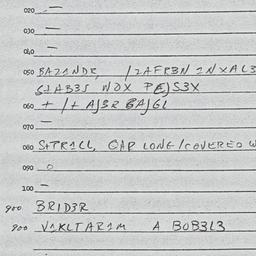 020 —
030 —
040 —
050 BAZ1NDR, /2AFRBN INXAL3
S1AB3S WOX PEJS3X
060 + /+ AJ3R BAJGL
070 —
080 S+PR1CL, OAP LONE/COVERED W
090 0
100 —
900 BRID3R
900 V1KLTAR1M A BOB3L3